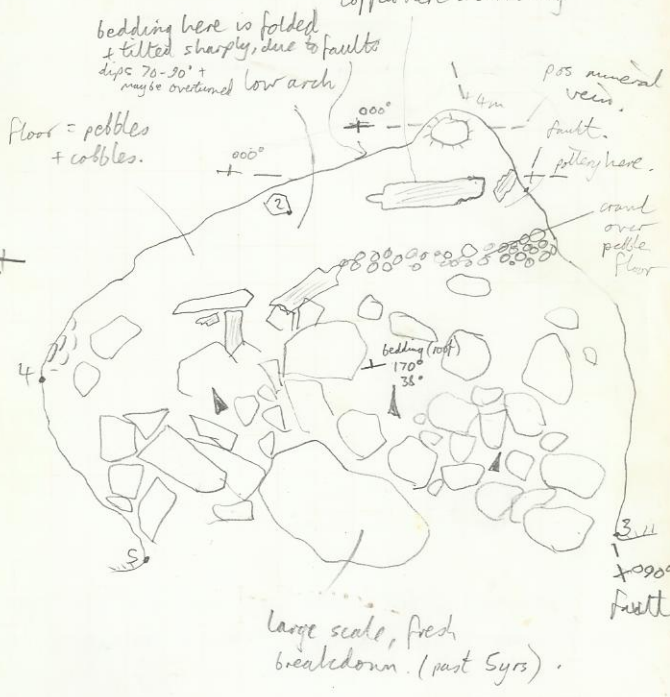 bedding here is folded
+ tilted sharply, due to faults
dips 70-90° +
maybe overturned
low arch
floor = pebbles
+ cobbles.
000°
000°
+4m
pos mineral
vein.
fault.
pottery here.
crawl
over
pebble
floor
2
bedding (roof)
170°
38°
4
5
3
090°
fault
large scale, fresh
breakdown. (past 5yrs).